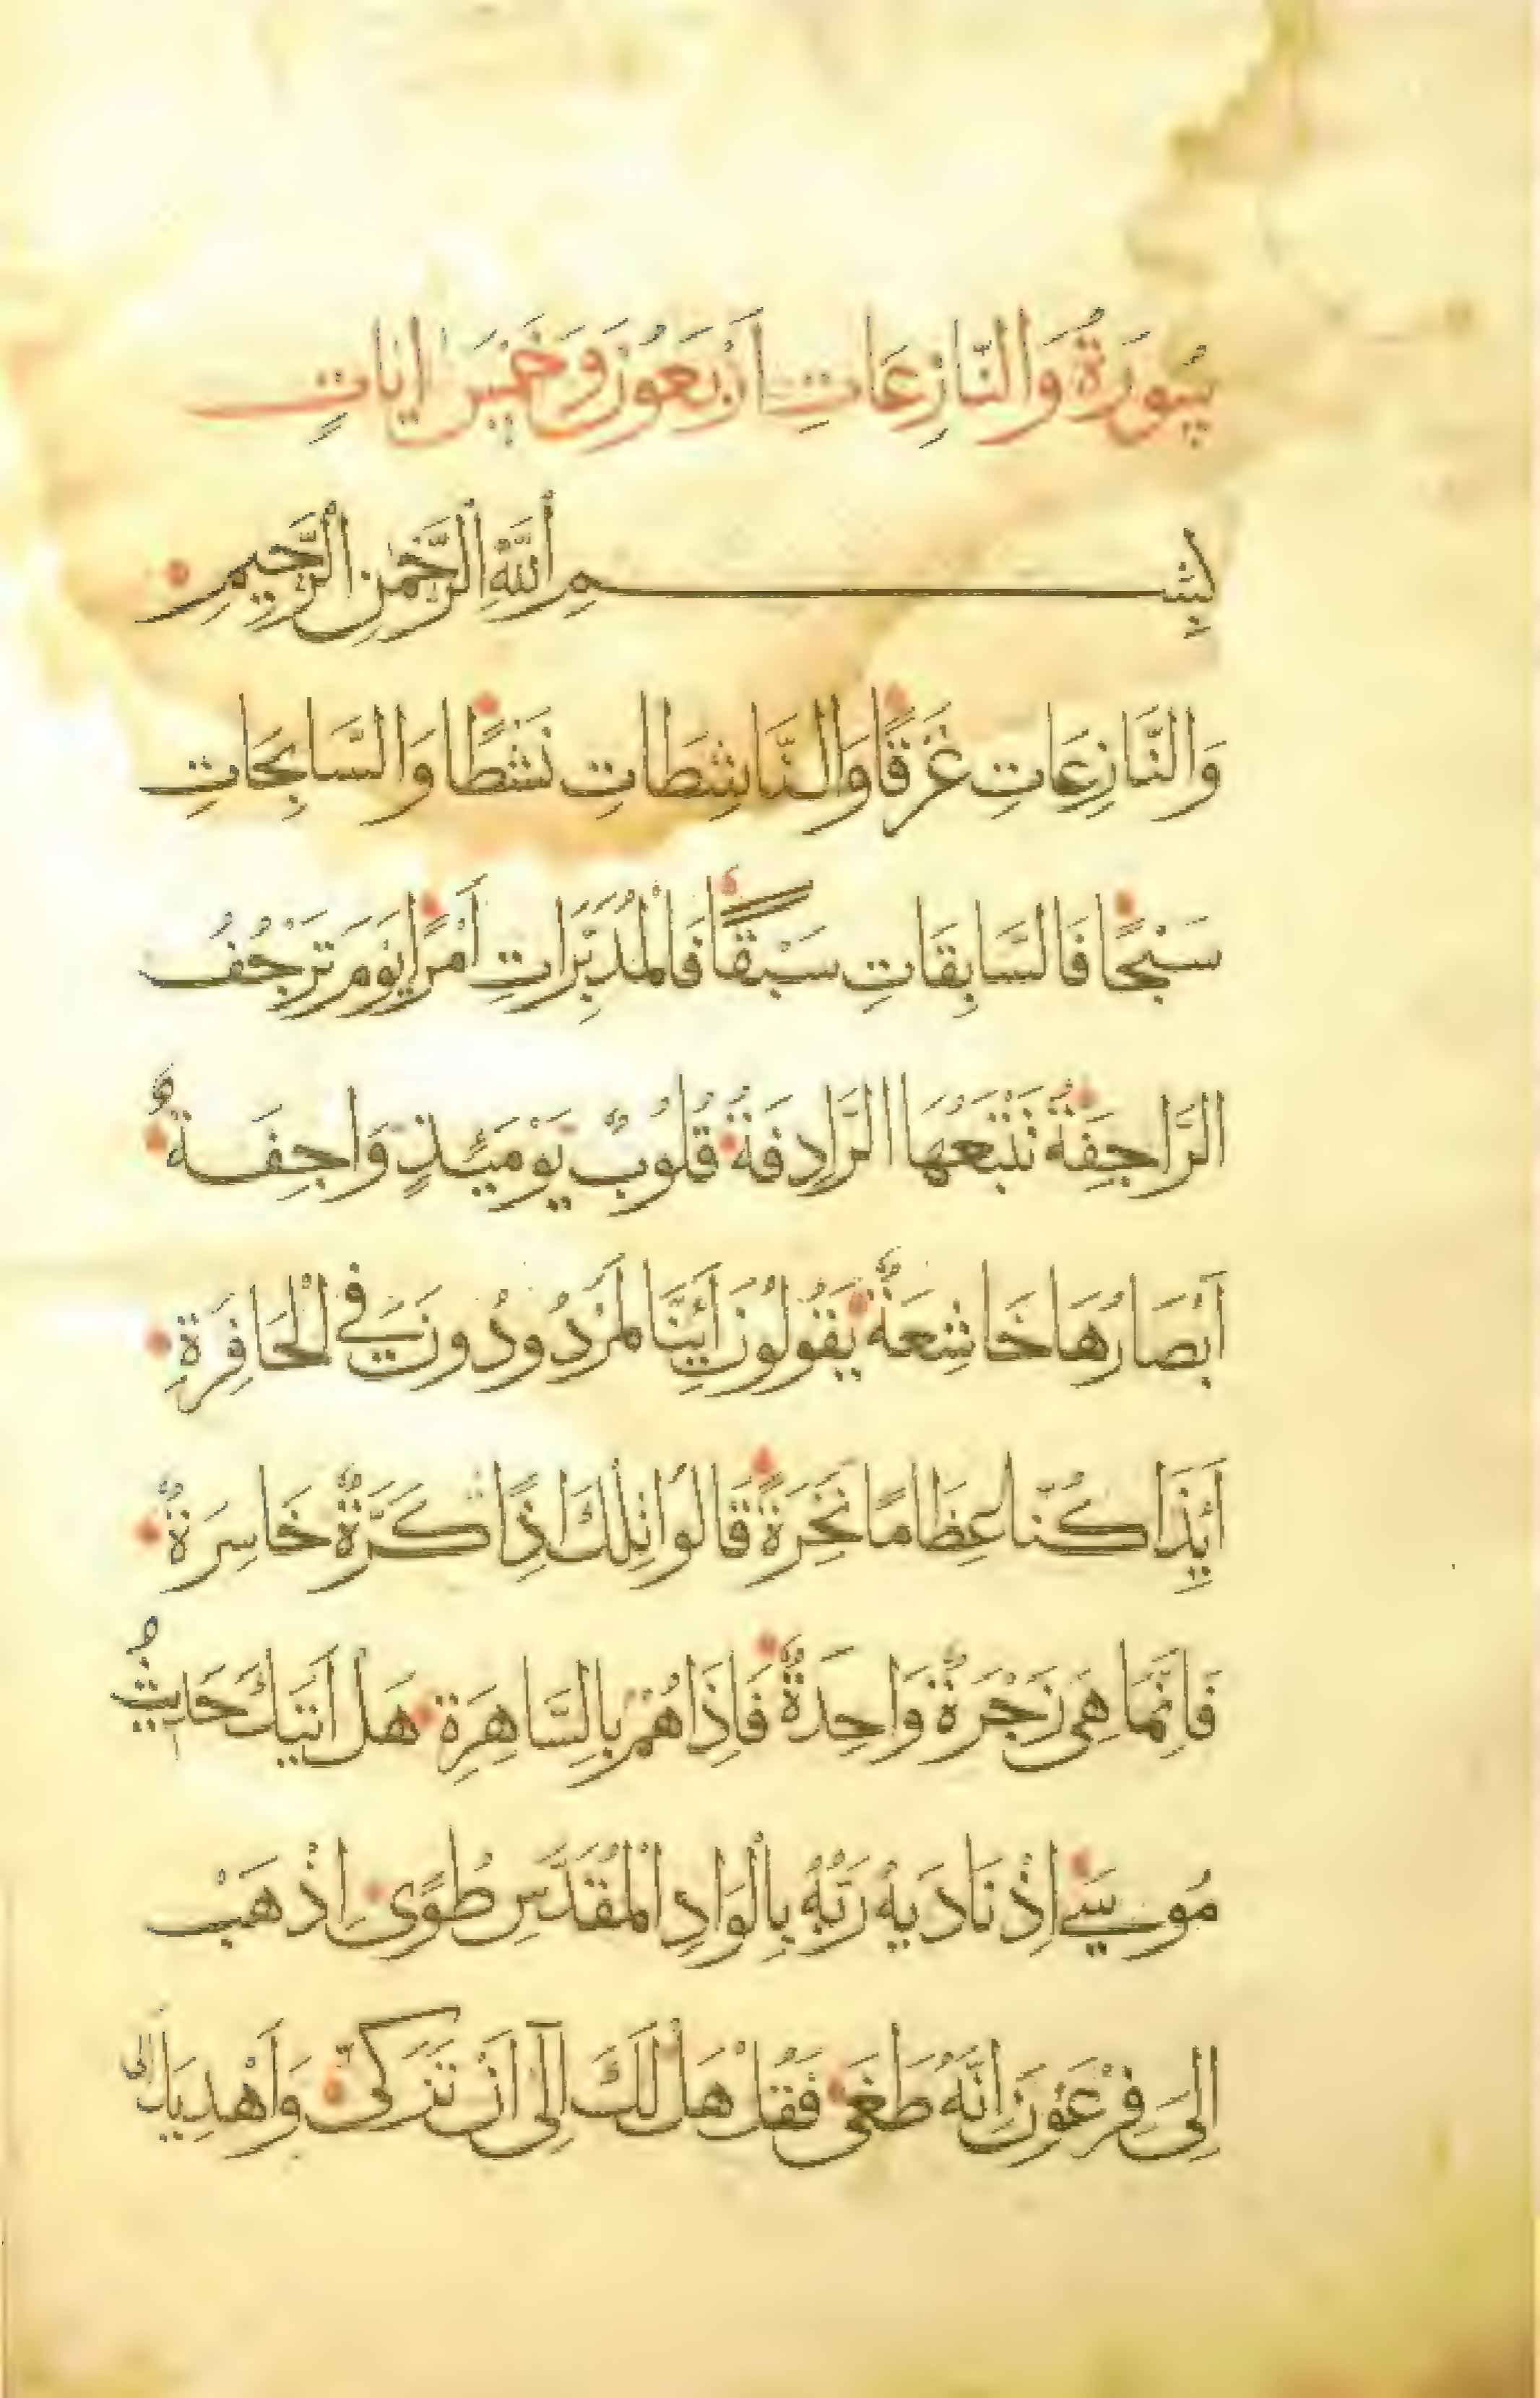 سُورَةُ وَالنَّازِعَاتِ اَرْبَعُونَ وَخَمْسُ اٰيَاتٍ
بِسْمِ اللَّهِ الرَّحْمٰنِ الرَّحِيمِ
وَالنَّازِعَاتِ غَرْقًا وَالنَّاشِطَاتِ نَشْطًا وَالسَّابِحَاتِ
سَبْحًا فَالسَّابِقَاتِ سَبْقًا فَالْمُدَبِّرَاتِ أَمْرًا يَوْمَ تَرْجُفُ
الرَّاجِفَةُ تَتْبَعُهَا الرَّادِفَةُ قُلُوبٌ يَوْمَئِذٍ وَاجِفَةٌ
اَبْصَارُهَا خَاشِعَةٌ يَقُولُونَ اَئِنَّا لَمَرْدُودُونَ فِي الْحَافِرَةِ
اَئِذَا كُنَّا عِظَامًا نَخِرَةً قَالُوا تِلْكَ اِذًا كَرَّةٌ خَاسِرَةٌ
فَاِنَّمَا هِيَ زَجْرَةٌ وَاحِدَةٌ فَاِذَا هُمْ بِالسَّاهِرَةِ هَلْ اَتٰيكَ حَدِيثُ
مُوسٰى اِذْ نَادٰيهُ رَبُّهُ بِالْوَادِ الْمُقَدَّسِ طُوًى اِذْهَبْ
اِلَى فِرْعَوْنَ اِنَّهُ طَغَى فَقُلْ هَلْ لَكَ اِلَى اَنْ تَزَكَّى وَاَهْدِيَكَ اِلَى